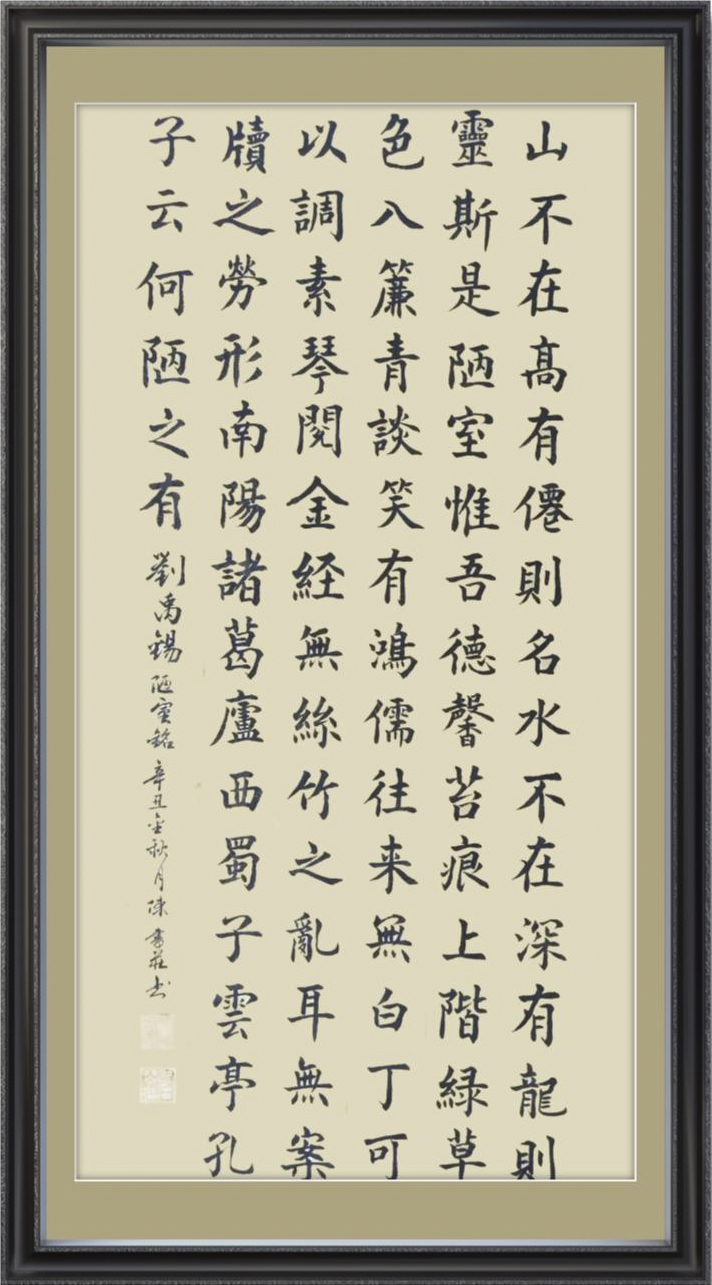 山不在高有僊則名水不在深有龍則
靈斯是陋室惟吾德馨苔痕上階緑草
色入簾青談笑有鴻儒往来無白丁可
以調素琴閱金経無絲竹之亂耳無案
牘之勞形南陽諸葛廬西蜀子雲亭孔
子云何陋之有劉禹錫陋室銘辛丑金秋月陳書莊书